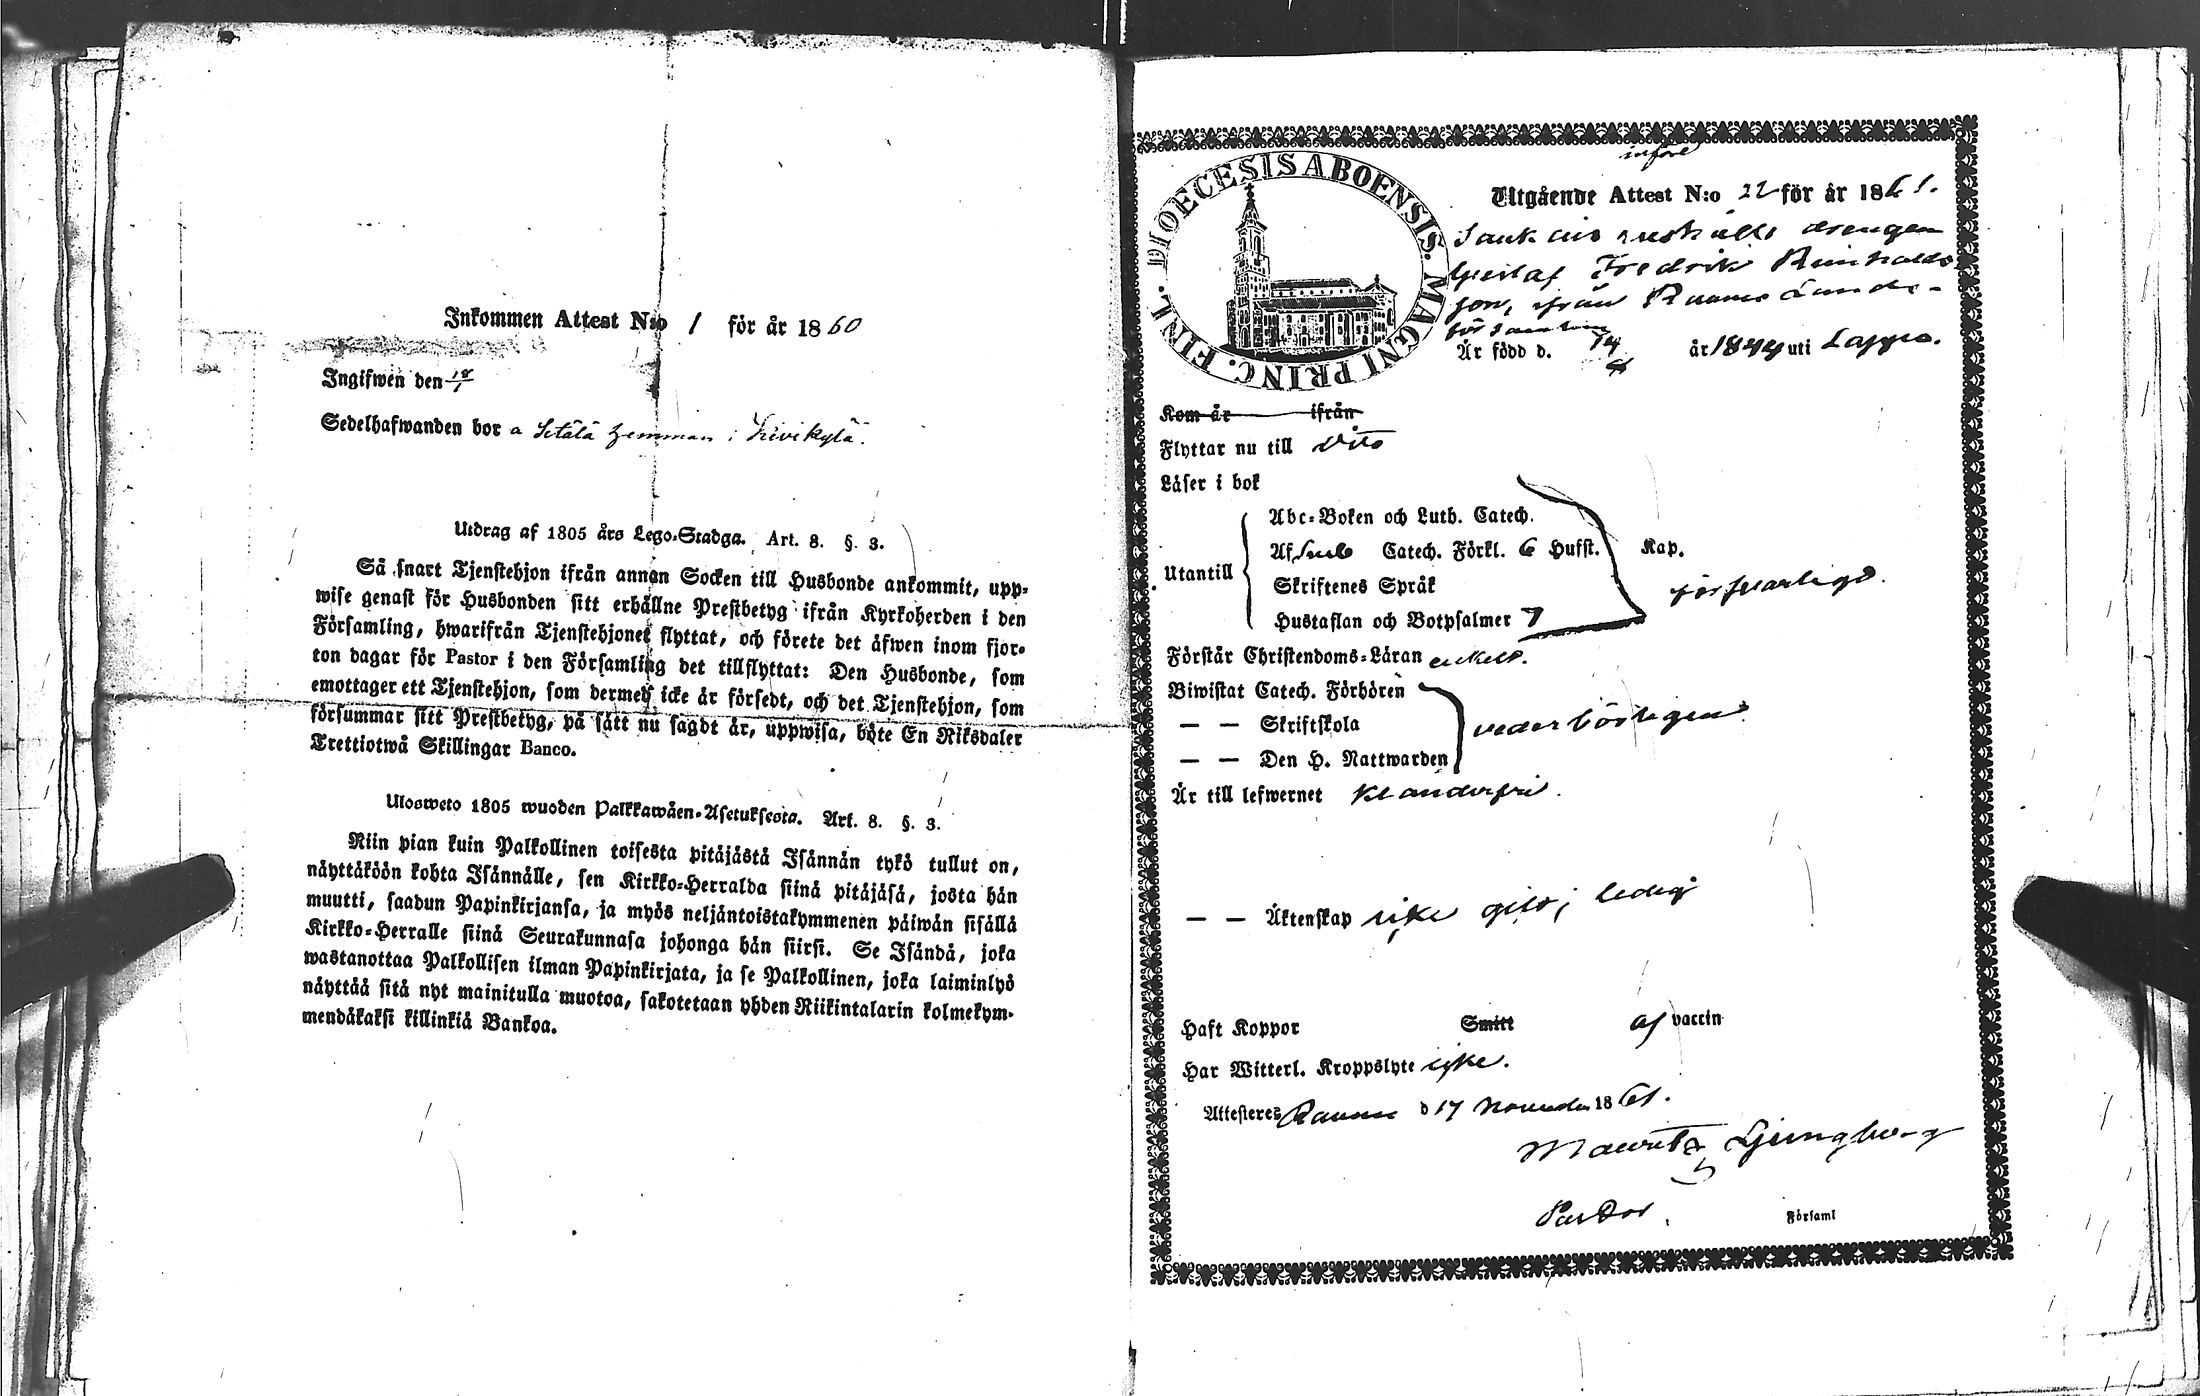 Inkommen Attest N:o 1 för år 1860
Ingifwen den 18/1
Sedelhafwanden bor a Sitälä hemman i Kivikylä.
Utdrag af 1805 års Lego-Stadga. Art. 8. §. 3.
Så snart Tjenstehjon ifrån annan Socken till Husbonde ankommit, upp-
wise genast för Husbonden sitt erhållne Prestbetyg ifrån Kyrkoherden i den
Församling, hwarifrån Tjenstehjonet flyttat, och förete det äfwen inom fjor-
ton dagar för Pastor i den Församling det tillflyttat: Den Husbonde, som
emottager ett Tjenstehjon, som dermed icke är försedt, och det Tjenstehjon, som
försummar sitt Prestbetyg, på sätt nu sagdt är, uppwisa, böte En Riksdaler
Trettiotwå Skillingar Banco.
Ulosweto 1805 wuoden Palkkawäen-Asetuksesta. Art. 8. §. 3.
Niin pian kuin Palkollinen toisesta pitäjästä Isännän tykö tullut on,
näyttäköön kohta Isännälle, sen Kirkko-Herralda siinä pitäjäsä, josta hän
muutti, saadun Papinkirjansa, ja myös neljäntoistakymmenen päiwän sisällä
Kirkko-Herralle siinä Seurakunnasa johonga hän siirsi. Se Isändä, joka
wastanottaa Palkollisen ilman Papinkirjata, ja se Palkollinen, joka laiminlyö
näyttää sitä nyt mainitulla muotoa, sakotetaan yhden Riikintalarin kolmekym-
mendäkaksi killinkiä Bankoa.
DIOECESIS ABOENSIS. MAGNI PRINC. FINL.
Utgående Attest N:o 22 för år 1861.
drengen
Gustaf Fredrik Reinholds
son, ifrån Raumo Lands-
församling
Är född d. 14/4 år 1844 uti Lappo.
Kom år ifrån
Flyttar nu till
Läser i bok
Abc-Boken och Luth. Catech.
Af Catech. Förkl. 6 Husst. Kap.
Utantill
Skriftenes Språk
försvarligt.
Hustaflan och Botpsalmer 7
Förstår Christendoms-Läran enkelt.
Biwistat Catech. Förhören
— — Skriftskola vederbörligen
— — Den H. Nattwarden
Är till lefwernet klanderfri.
— — Äktenskap icke gift; ledig
Haft Koppor Smitt af vaccin
Har Witterl. Kroppslyte icke.
Attesteres Raumo d 17 November 1861.
Mauritz Ljungberg
Pastor. Församl